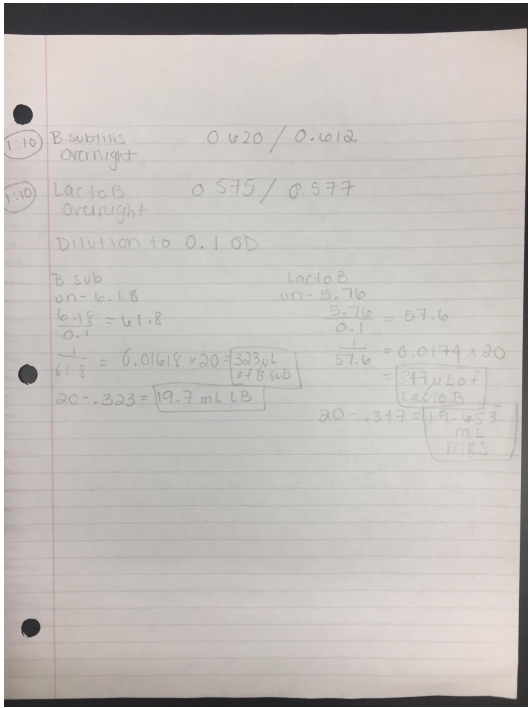 1:10 B. subtilis 0.620 / 0.612
Overnight
1:10 LactoB 0.575 / 0.577
Overnight
Dilution to 0.1 OD
B sub
un- 6.18
6.18/0.1 = 61.8
1/61.8 = 0.01618 × 20 = 323 uL of B. sub
20 - .323 = 19.7 mL LB
LactoB
un- 5.76
5.76/0.1 = 57.6
1/57.6 = 0.0174 × 20
= 347 uL of LactoB
20 - .347 = 19.653 mL MRS